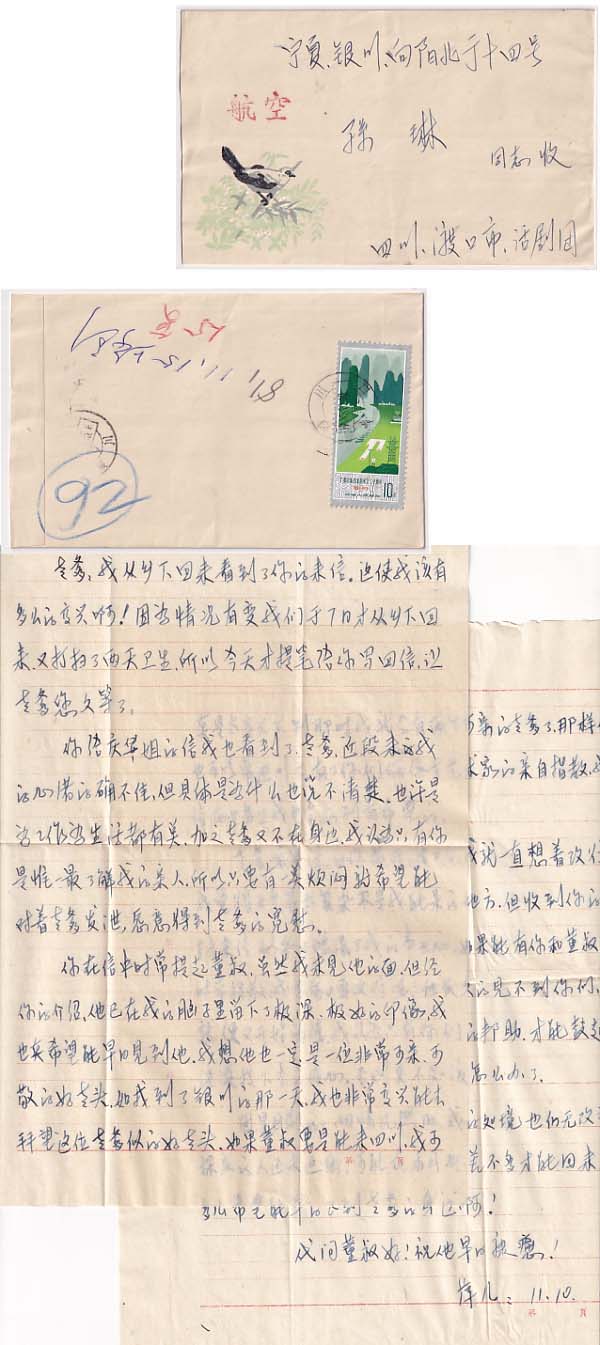 宁夏、银川、向阳北于十四号
航空
孙 琳
同志收
四川、渡口市、话剧团
81.1.15.
92
10
老爹，我从乡下回来看到了你的来信。这使我该有
多么的高兴啊！因为情况有变我们于7日才从乡下回
来，又打扫了两天卫生，所以今天才提笔给你写回信，让
老爹您久等了。
你给庆华姐的信我也看到了，老爹，近段来我
的心情的确不佳，但具体是为什么也说不清楚，也许是
与工作与生活都有关，加之老爹又不在身边，我认为只有你
是惟一最了解我的亲人，所以只要有一点烦闷就希望能
对着老爹发泄，愿意得到老爹的宽慰。
你在信中时常提起董叔，虽然我未见他的面，但经
你的介绍，他已在我的脑子里留下了极深、极好的印像，我
也真希望能早日见到他，我想他也一定是一位非常可亲、可
敬的好老头，如我到了银川的那一天，我也非常高兴能去
拜望这位老爹似的好老头，如果董叔要是能来四川，我可
可亲的老爹了，那样你
家的亲自指教，我
我说一直想着改行
地方，但收到你的
如果能有你和董叔
的见不到你们，
的帮助，才能鼓起
怎么办了。
的处境也仍无改
差不多才能回来
多么希望能早日回到老爹的身边啊！
代问董叔好！祝他早日铍愈！
萍儿：11.10.
第 页